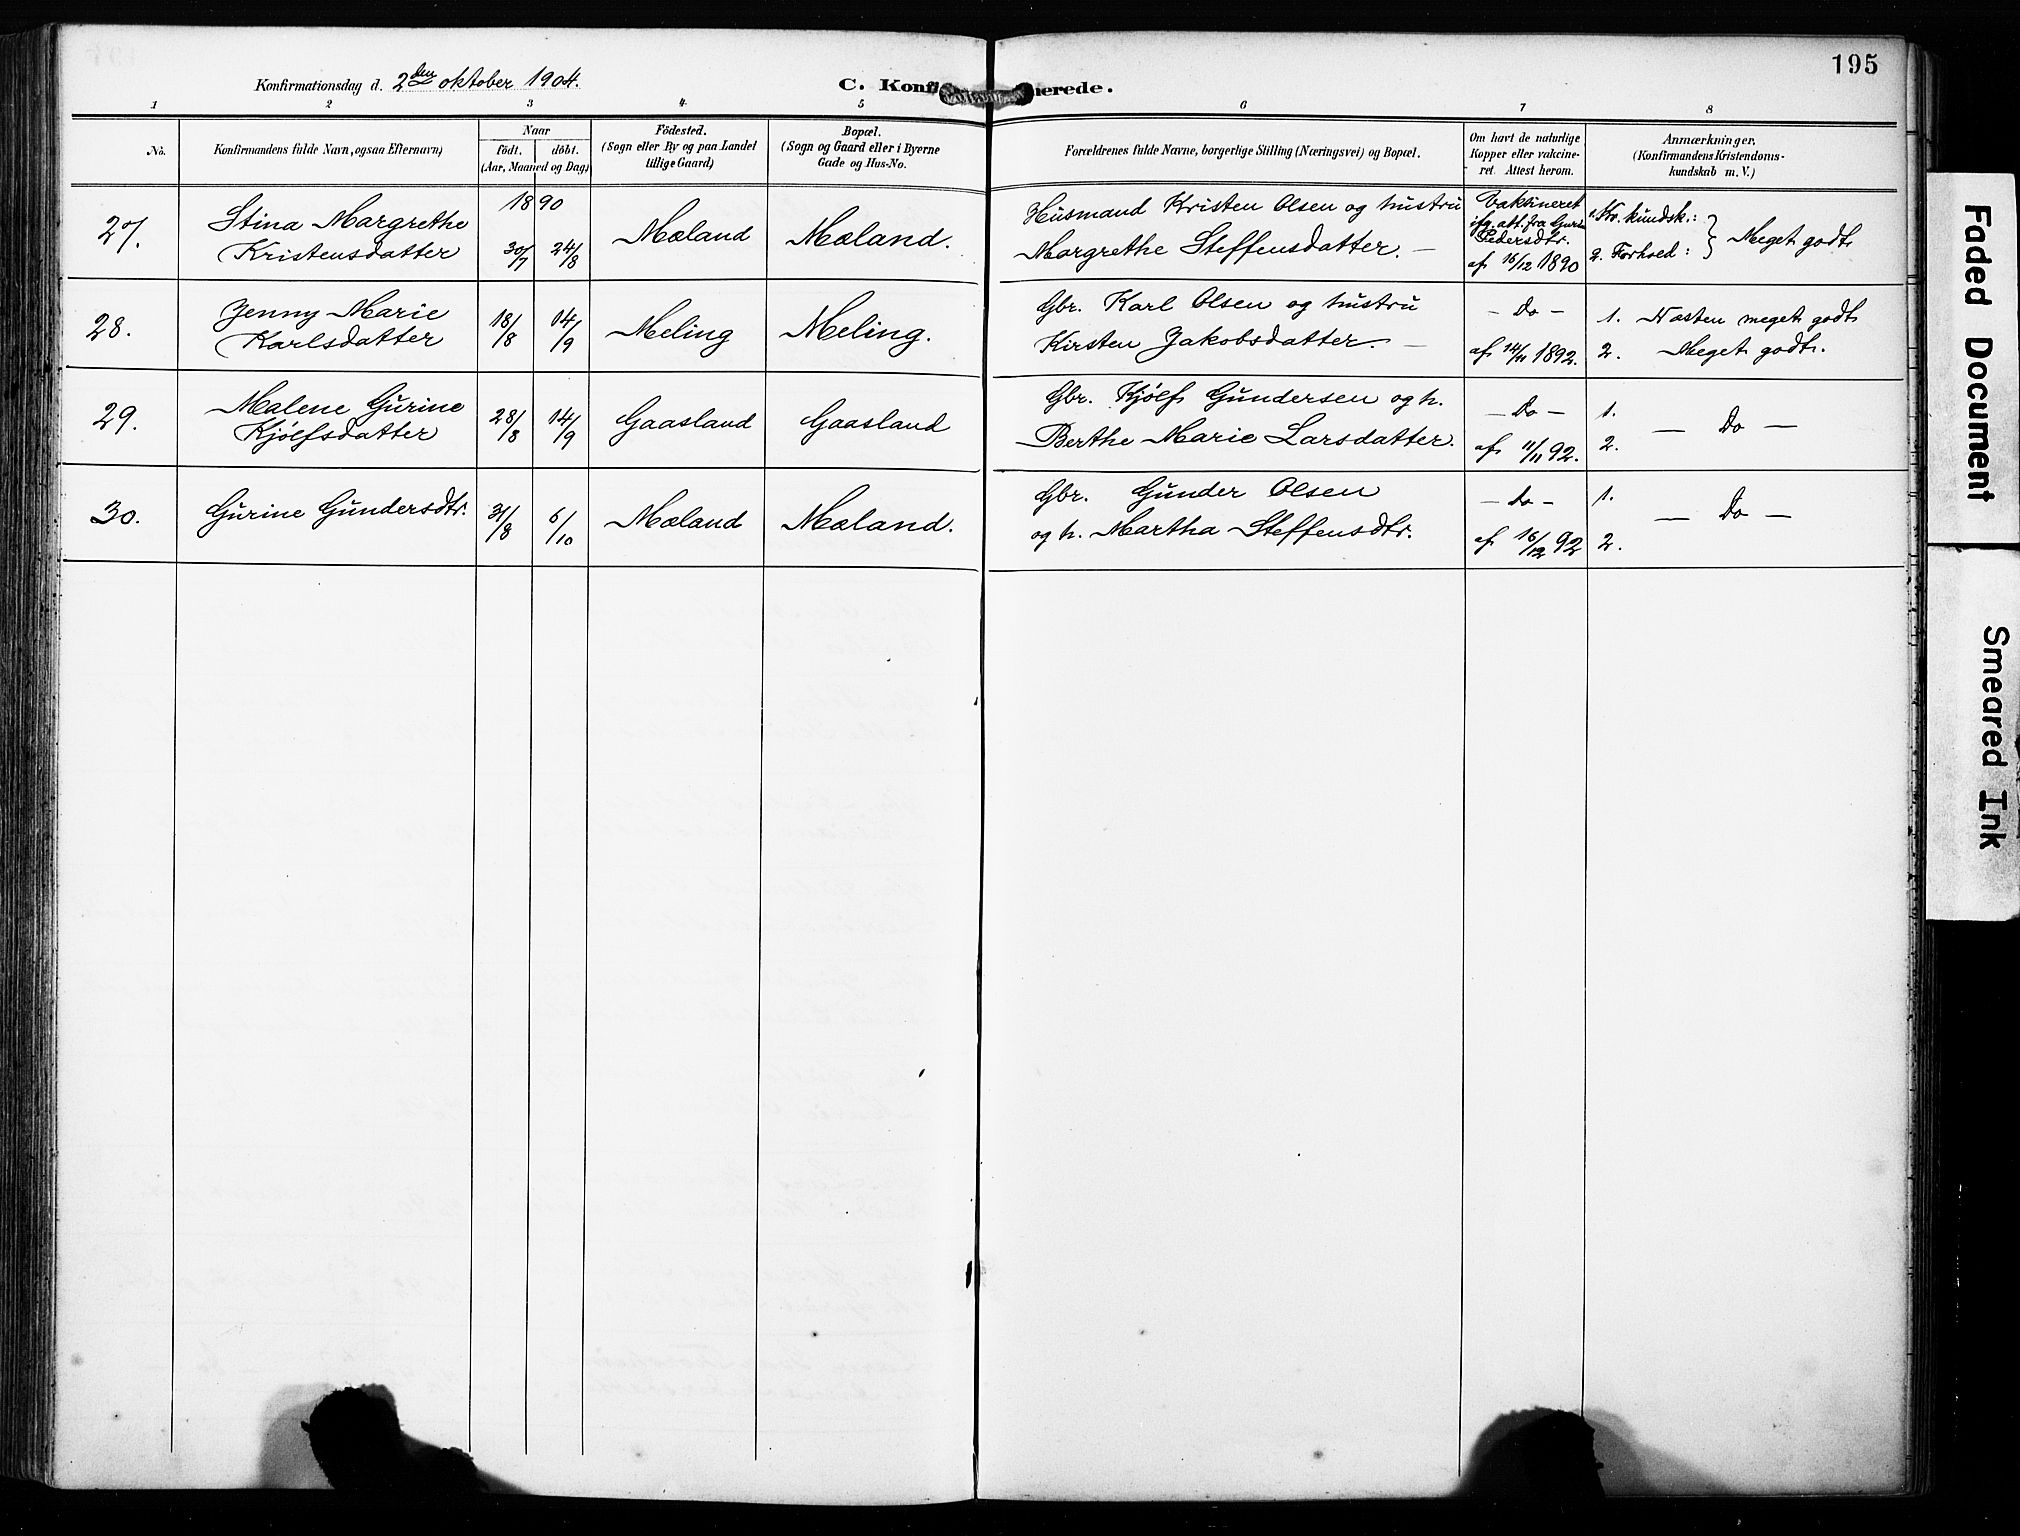 195
Konfirmationsdag d. 2den oktober 1904.
C. Konf
erede.
1 2 3 4 5 6 7 8
No.
Konfirmandens fulde Navn, ogsaa Efternavn)
Naar
födt. döbt.
(Aar, Maaned og Dag)
Födested.
(Sogn eller By og paa Landet
tillige Gaard)
Bopæl.
(Sogn og Gaard eller i Byerne
Gade og Hus-No.
Forældrenes fulde Navne, borgerlige Stilling (Næringsvei) og Bopæl.
Om havt de naturlige
Kopper eller vakcine-
ret. Attest herom.
Anmærkninger,
(Konfirmandens Kristendoms-
kundskab m. V.)
27.
Stina Margrethe
Kristensdatter
1890
30/7 24/8
Mæland
Mæland.
Husmand Kristen Olsen og hustru
Margrethe Steffensdatter. —
Vaktineret
ifg. att. fra Guri
Pedersdtr.
af 16/12 1890
1. Kr. kundsk.:
2. Forhold:
} Meget godt
28.
Jenny Marie
Karlsdatter
18/8 14/9
Meling
Meling.
Gbr. Karl Olsen og hustru
Kirsten Jakobsdatter —
— Do —
af 14/11 1892.
1. Næsten meget godt
2. Meget godt.
29.
Malene Gurine
Kjølfsdatter
28/8 14/9
Gaasland
Gaasland
Gbr. Kjølf Gundersen og h.
Berthe Marie Larsdatter.
— Do —
af 11/11 92.
1.
2.
— Do —
30.
Gurine Gundersdtr.
31/8 6/10
Mæland
Mæland.
Gbr. Gunder Olsen
og h. Martha Steffensdtr.
— Do —
af 16/12 92
1.
2.
— Do —
Faded Document
Smeared Ink